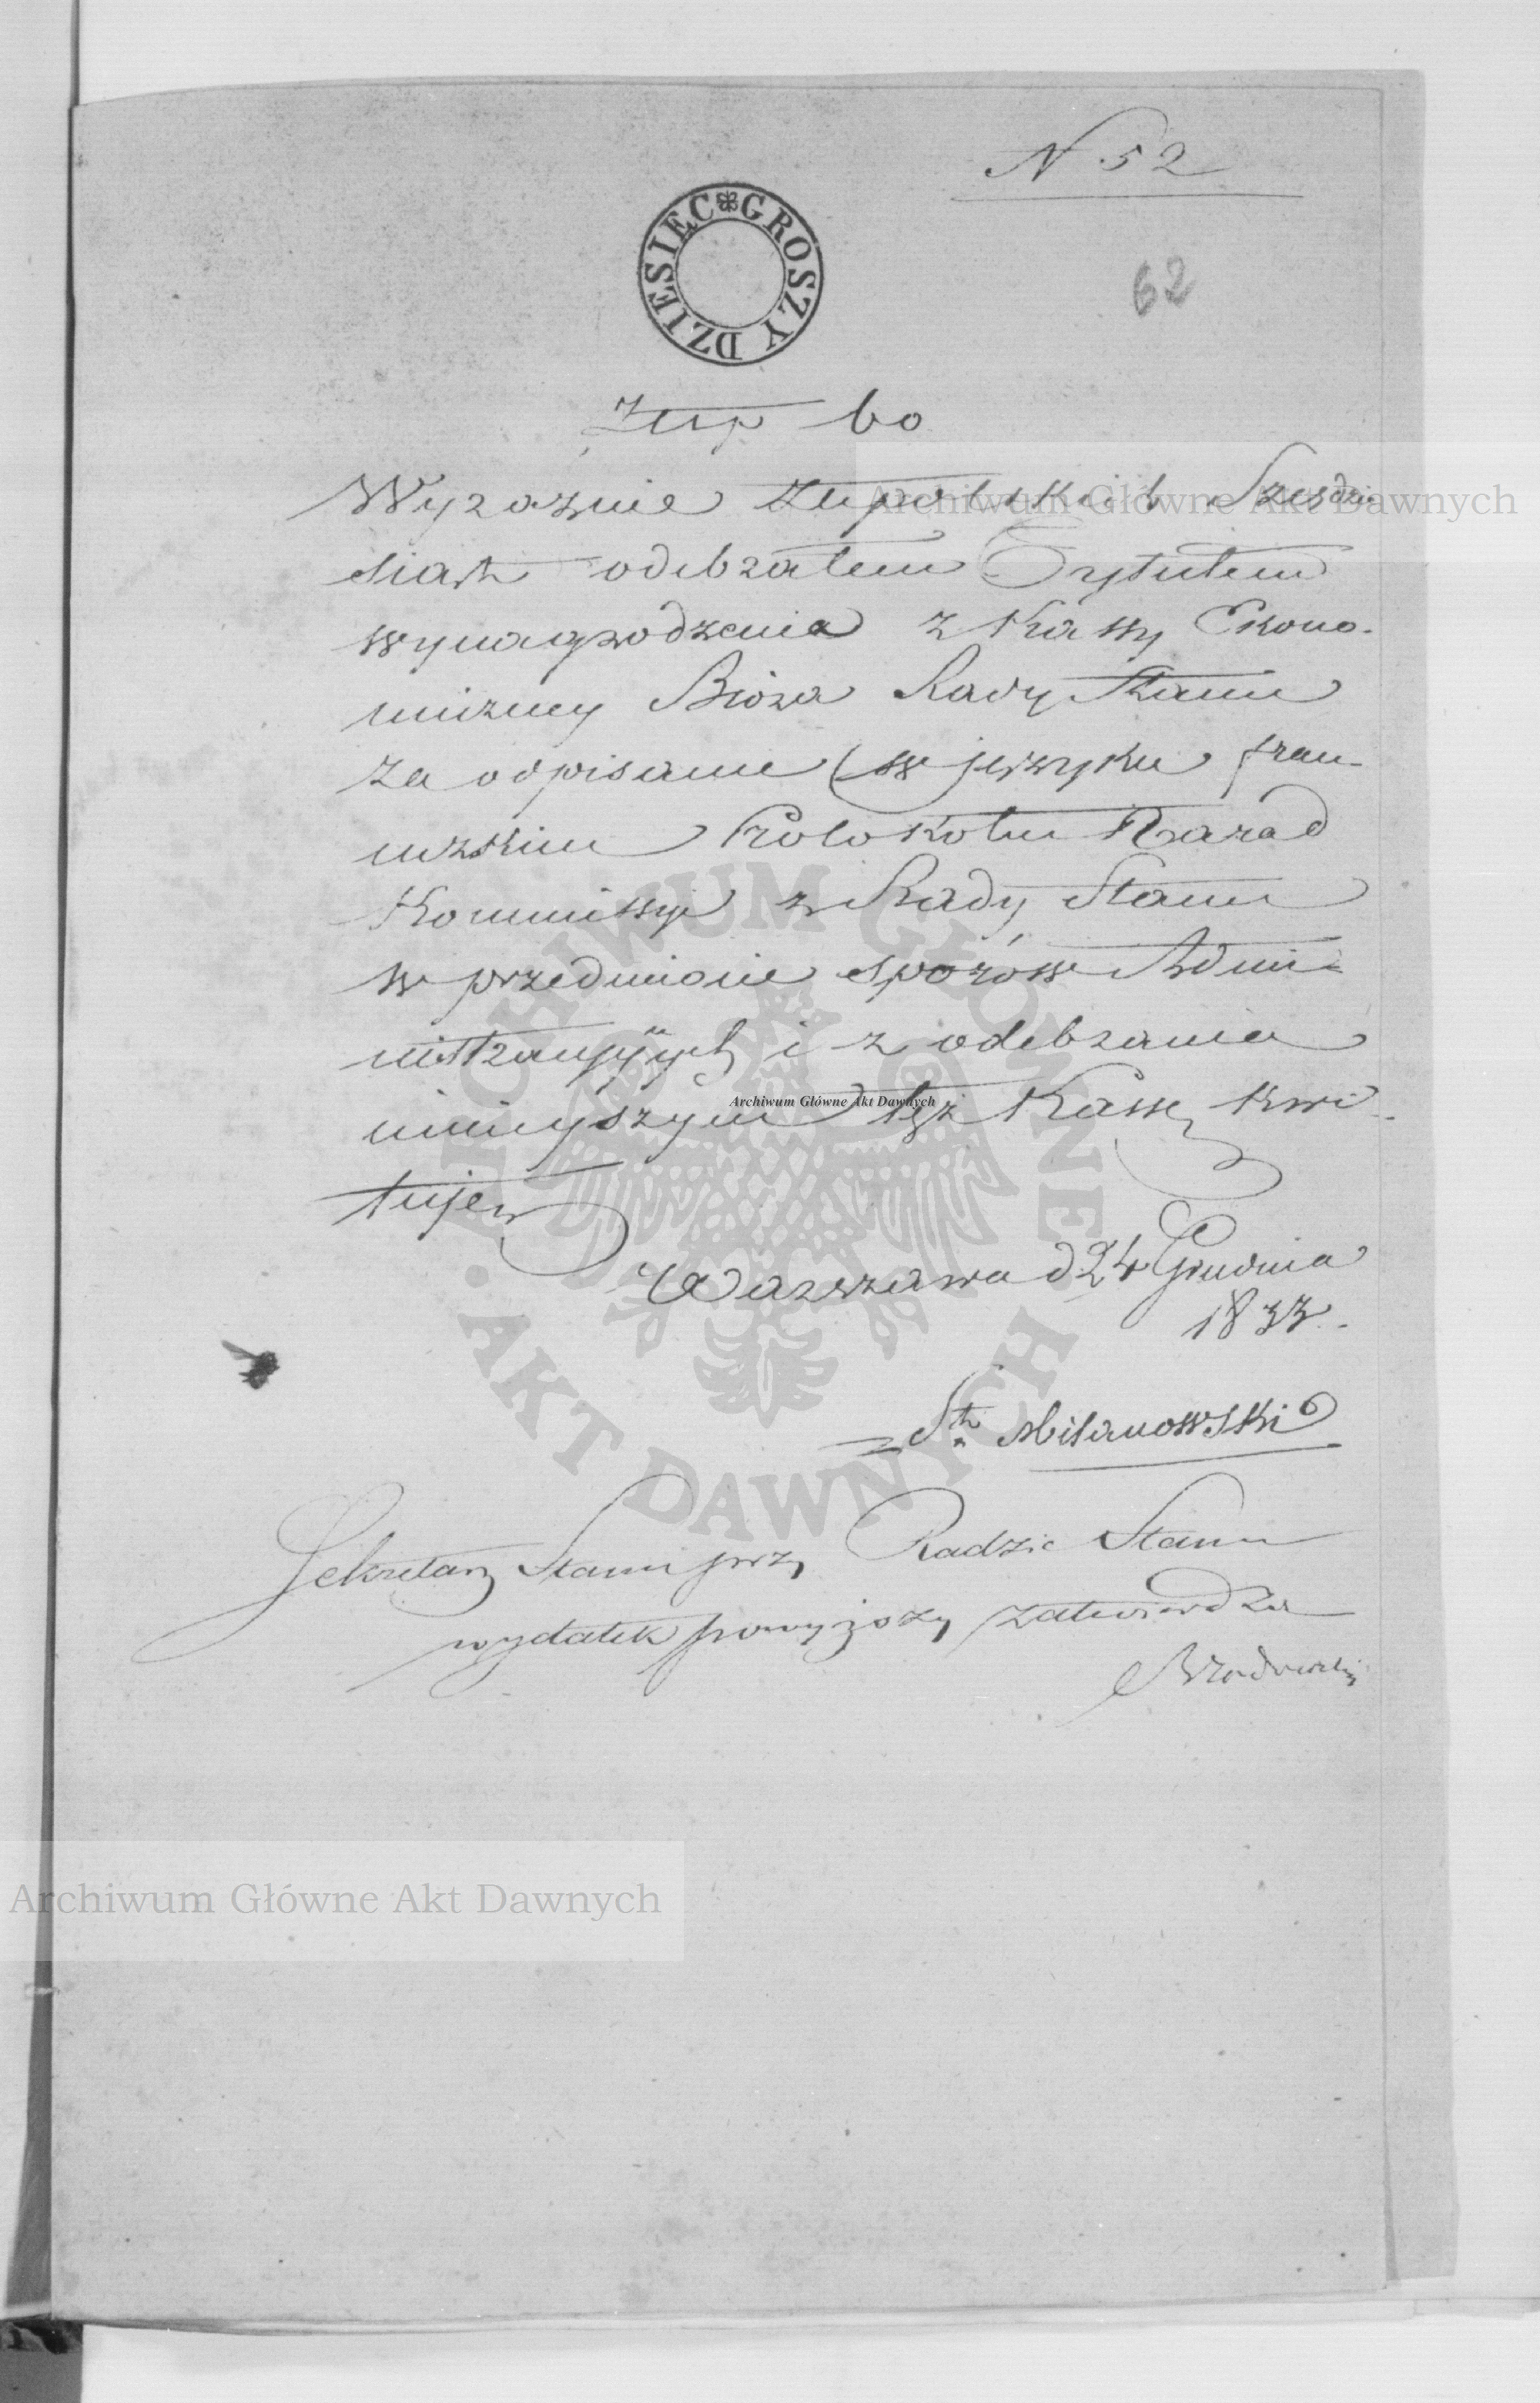 N 52
DZIESIEC GROSZY
62
Złp 60
Wyraznie złpolskich Szesdzie
siąt odebrałem Tytułem
wynagrodzenia z Kassy Ekono-
miczney Bióra Rady Stanu
za odpisanie w języku fran-
cuzkim Protokołu Narad
Kommissyi z Rady Stanu
w przedmiocie sporów Admi-
nistracyjnych i z odebrania
ninieyszym tęż Kassę kwi-
tuję
Warszawa d 24 Grudnia
1833.
Milanowski
Sekretarz Stanu przy Radzie Stanu
wydatek powyższy zatwierdza
Archiwum Główne Akt Dawnych
Archiwum Główne Akt Dawnych
ARCHIWUM GŁÓWNE AKT DAWNYCH
Archiwum Główne Akt Dawnych